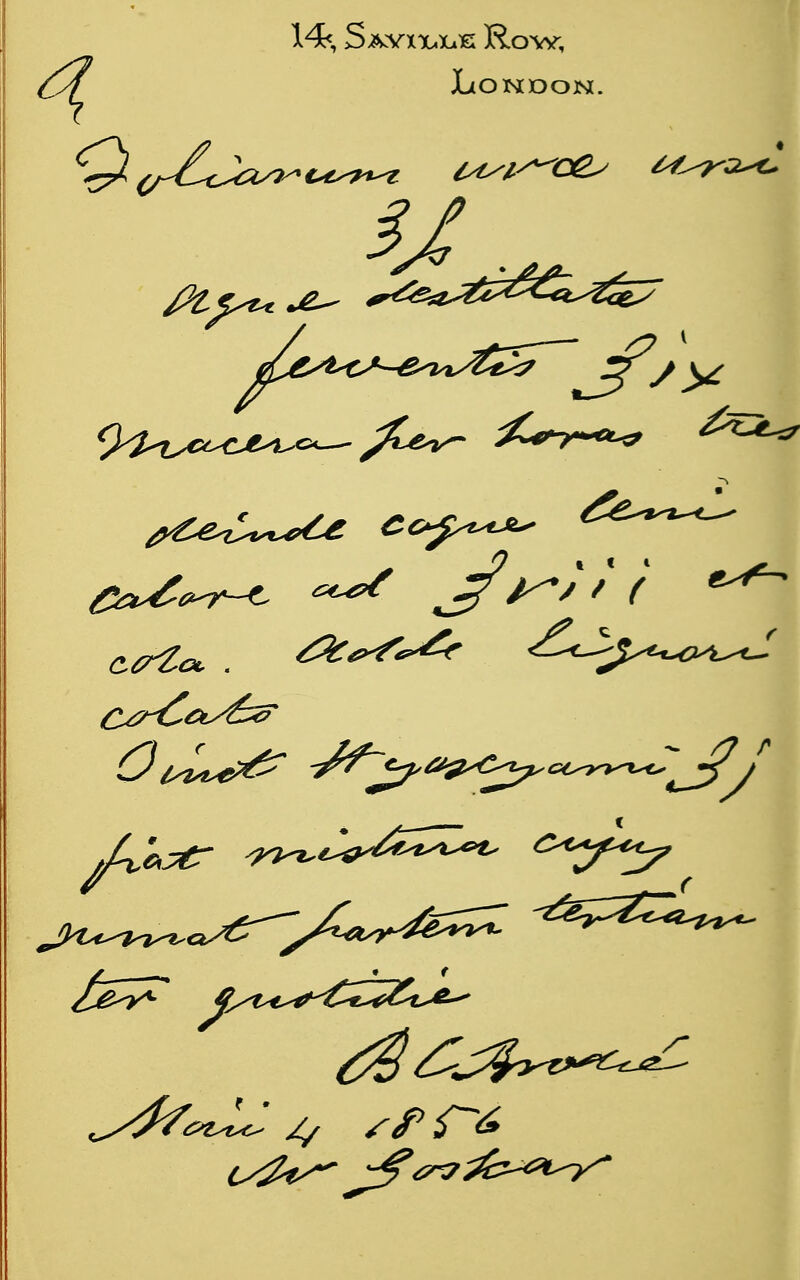 14, Saville Row,
London.
℞
Foliarum uvae ursi
℥ſs
Aquae destillatae
ferventis ℥ix
Macera per horas tres
deinde coque leni
calore ad ℥viii et
cola. Adde Liquori
colato
Tinct Hyoscyami ℥j
fiat mistura cujus
sumat partem tertiam
ter quotidie
B C Brodie
Maii 4 1856
Mr Foskar